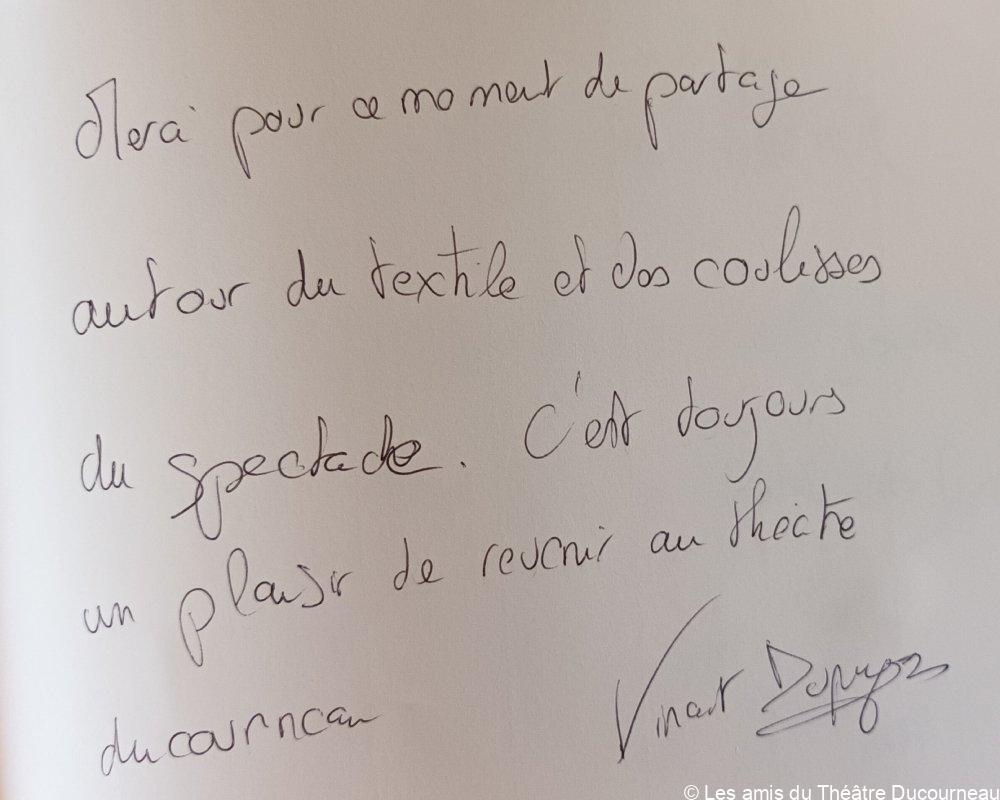 Merci pour ce moment de partage
autour du textile et des coulisses
du spectacle. C'est toujours
un plaisir de revenir au théâtre
ducourneau
Vincent
© Les amis du Théâtre Ducourneau